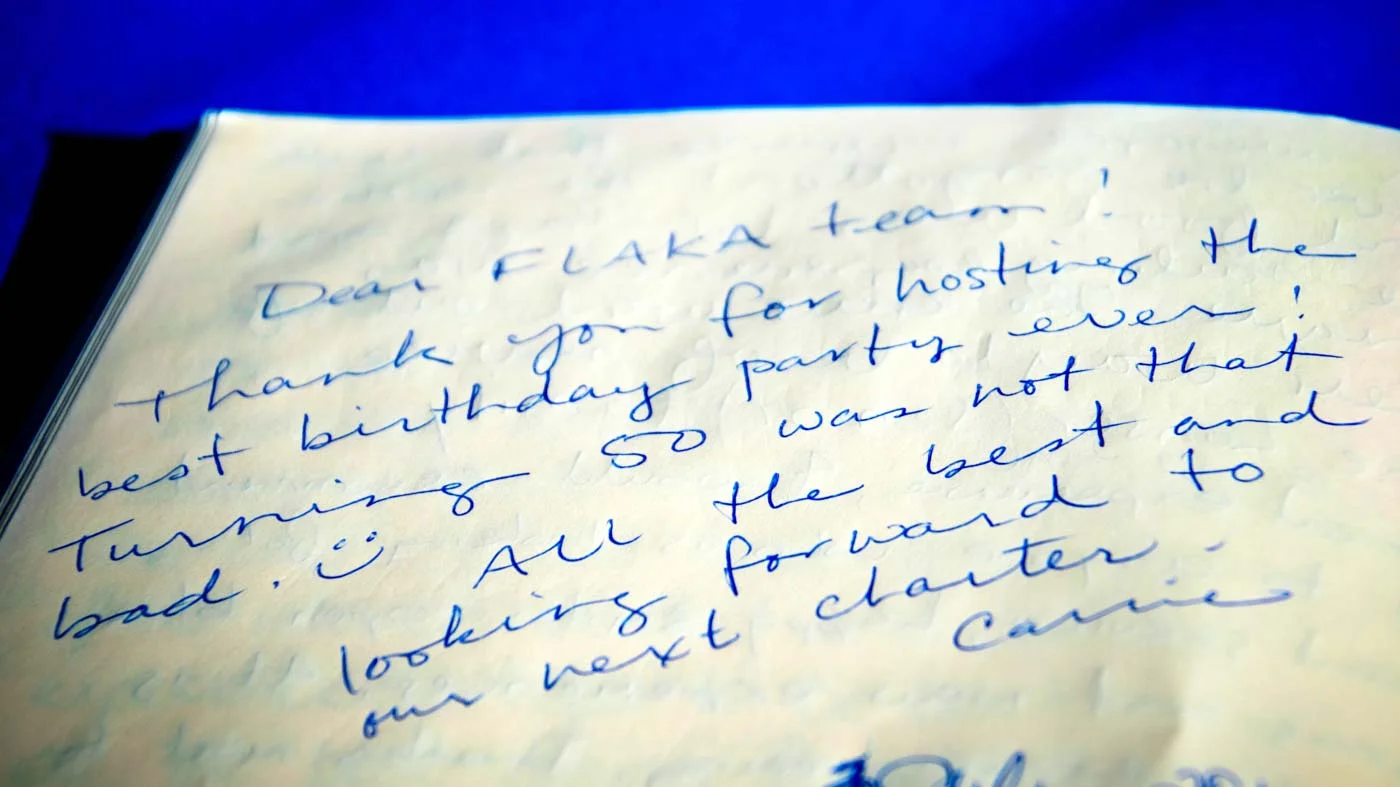 Dear FLAKA team!
thank you for hosting the
best birthday party ever!
Turning 50 was not that
bad. :) All the best and
looking forward to
our next charter.
Carrie